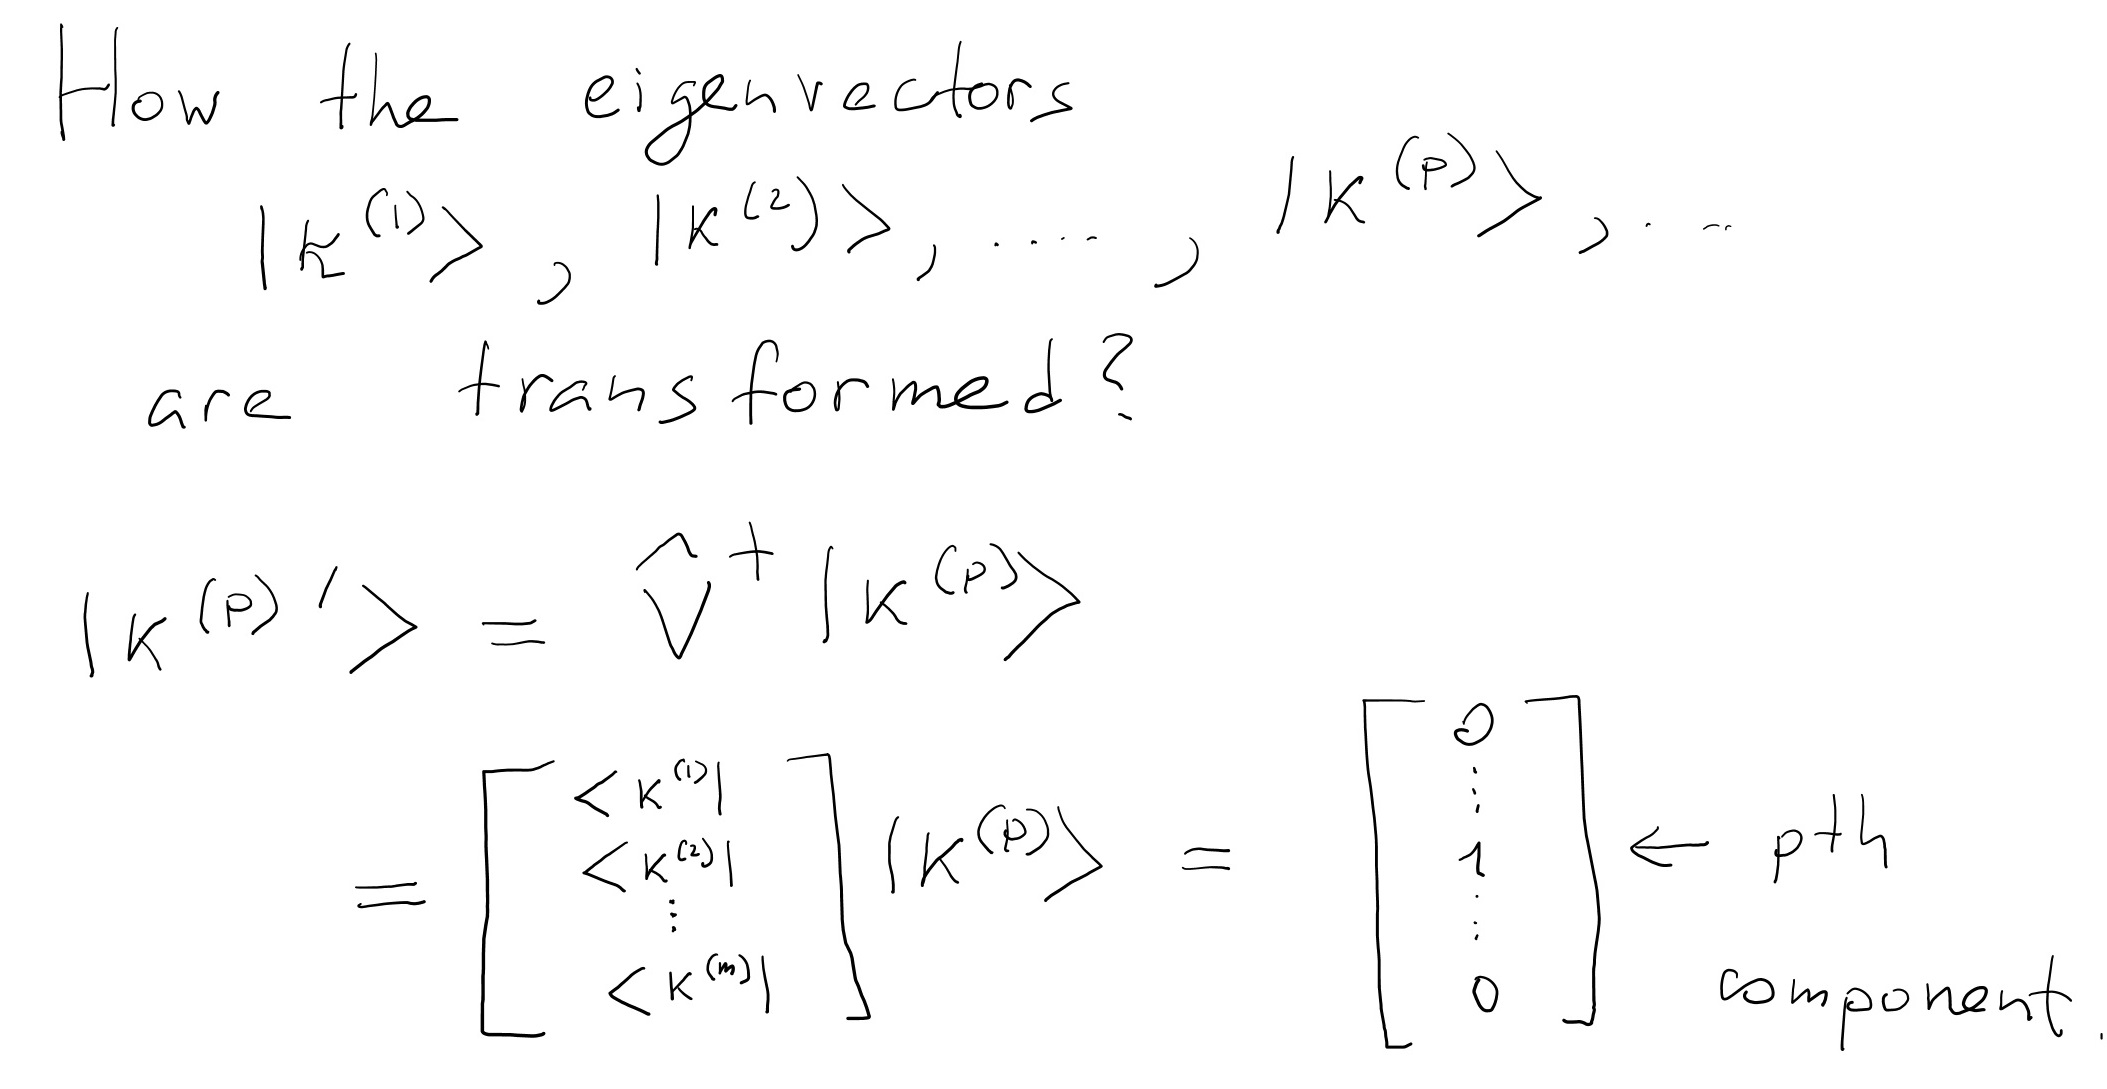 How the eigenvectors
|K^(1)>, |K^(2)>, ...., |K^(p)>, ....
are transformed?
|K^(p)'> = V̂^† |K^(p)>
= [ <K^(1)| <K^(2)| ⋮ <K^(m)| ] |K^(p)> = [ 0 ⋮ 1 ⋮ 0 ] ← pth
component.